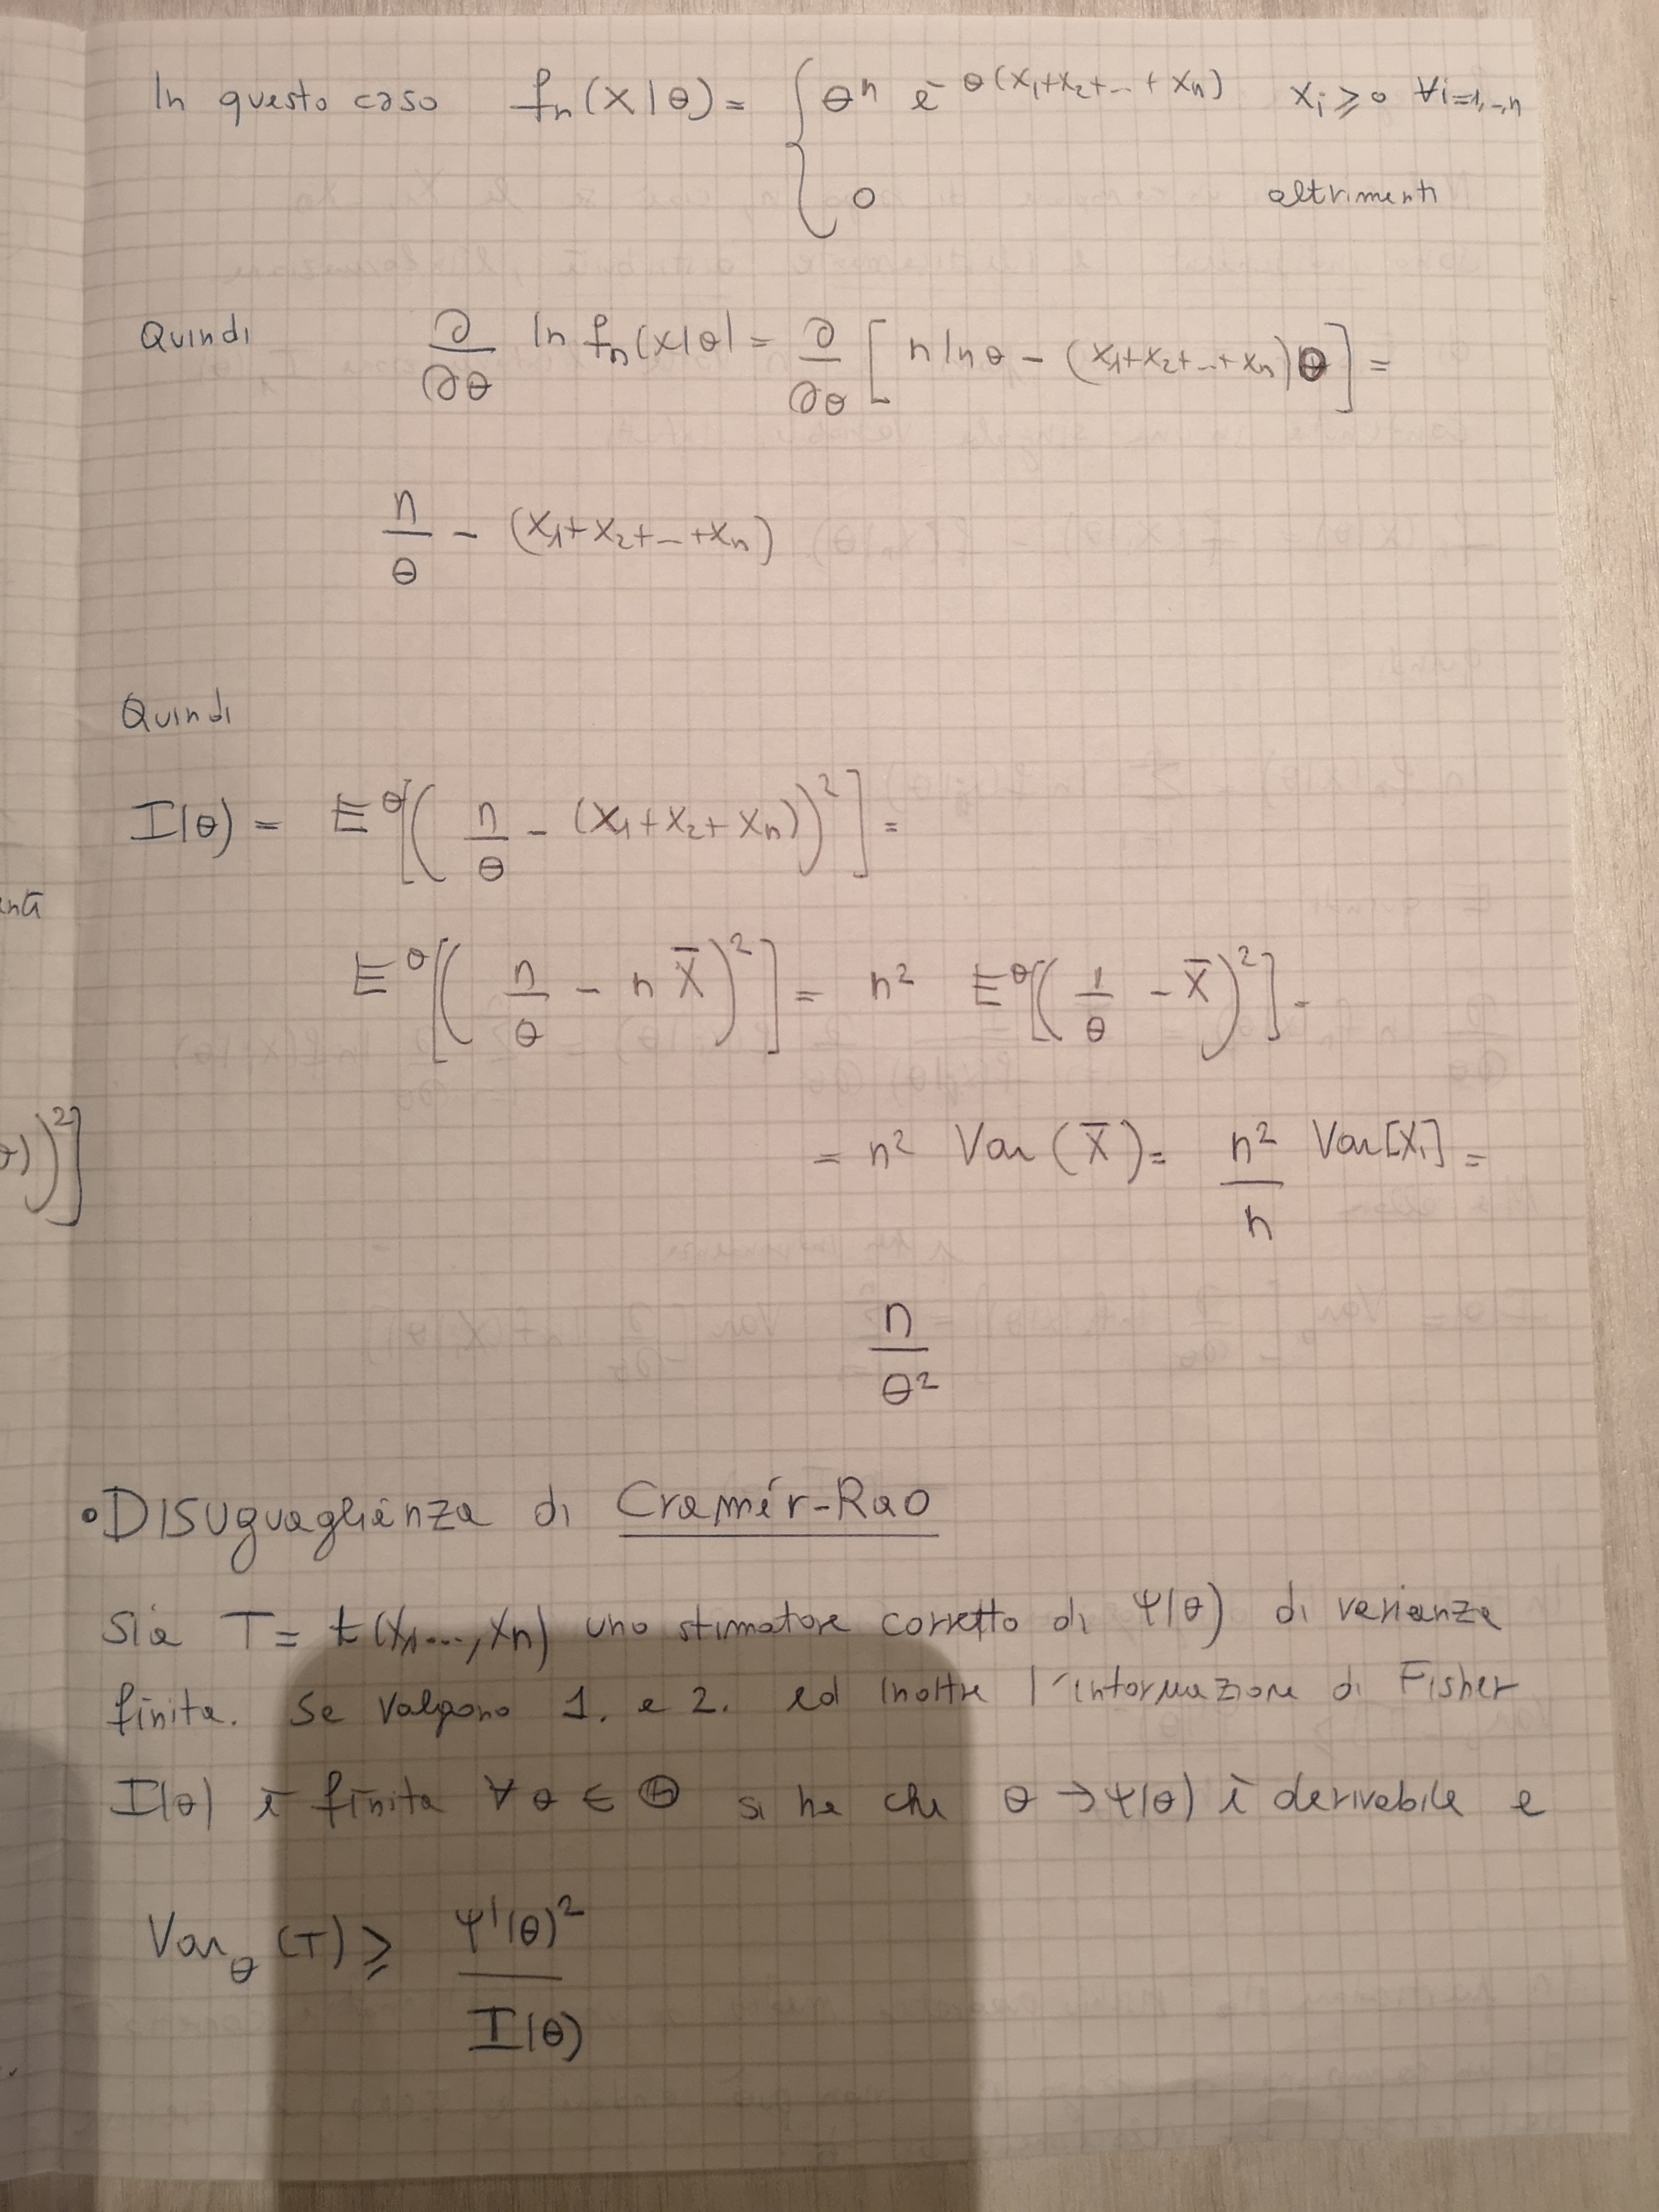 In questo caso fn(X|θ) = { θ^n e^-θ(x1+x2+...+xn) xi ≥ 0 ∀i=1,..,n
0 altrimenti
Quindi ∂/∂θ ln fn(x|θ) = ∂/∂θ [n ln θ - (x1+x2+...+xn)θ] =
n/θ - (x1+x2+...+xn)
Quindi
I(θ) = E^θ[(n/θ - (X1+X2+Xn))^2] =
E^θ[(n/θ - n X̄)^2] = n^2 E^θ[(1/θ - X̄)^2] =
= n^2 Var(X̄) = n^2/n Var[Xi] =
n/θ^2
• DISUguaglianza di Cramér-Rao
Sia T = t(X1..., Xn) uno stimatore corretto di Ψ(θ) di varianza
finita. Se valgono 1. e 2. ed inoltre l'informazione di Fisher
I(θ) è finita ∀ θ ∈ Θ si ha che θ → Ψ(θ) è derivabile e
Varθ (T) ≥ Ψ'(θ)^2 / I(θ)